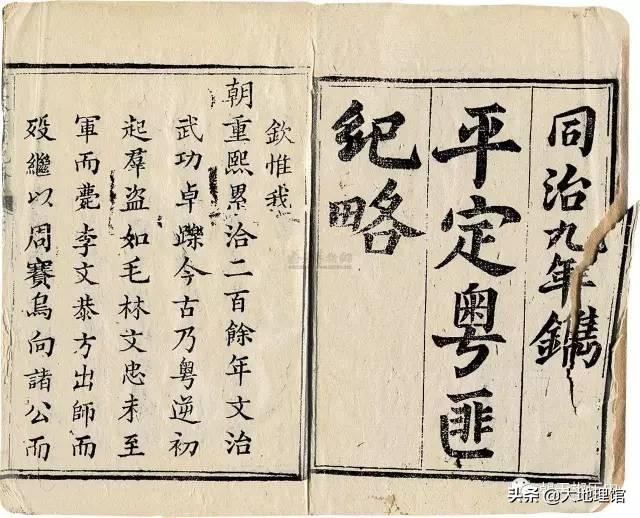 同治九年鐫
平定粵匪
紀略
欽惟我
朝重熙累洽二百餘年文治
武功卓躒今古乃粵逆初
起羣盜如毛林文忠未至
軍而薨李文恭方出師而
歿繼以周賽烏向諸公而
头条@大地理馆